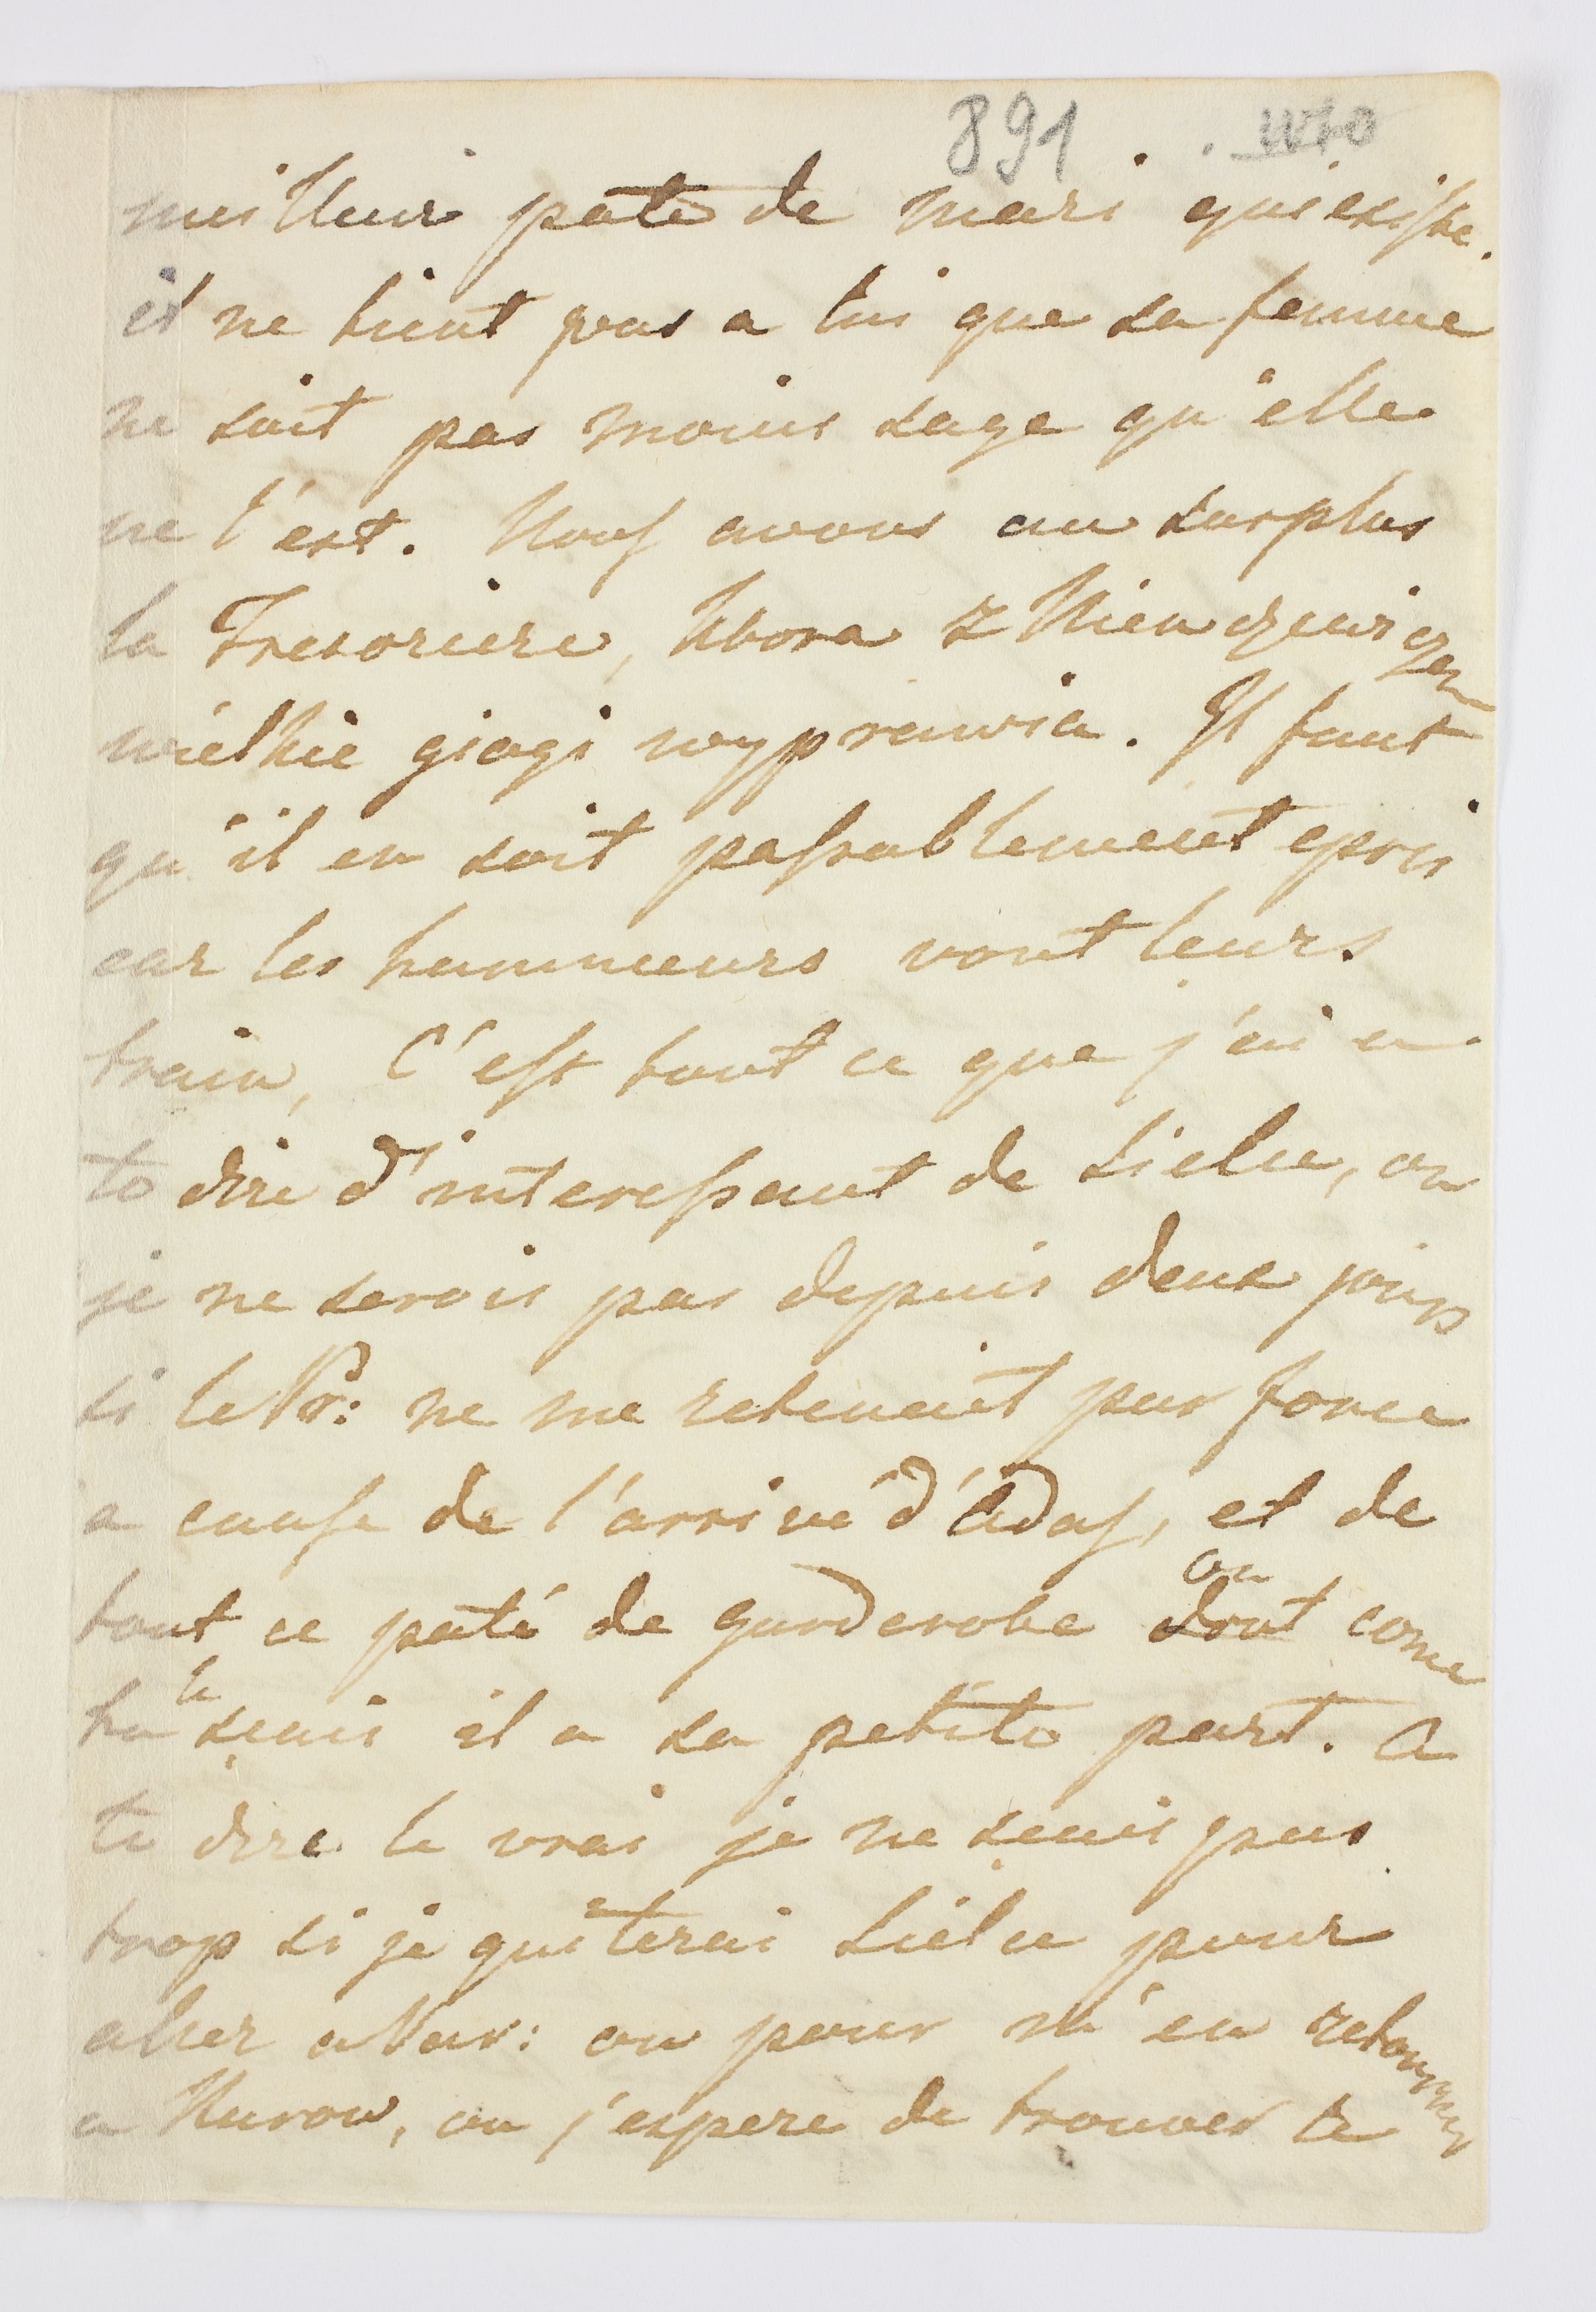 891
meilleur pate de mari qui existe.
il ne tient pas a lui que sa femme
ne soit pas moins sage qu'elle
ne l'est. Nous avons au surplus
la Tresoriere, ktora z
wielkie giogi wyprawia. Il faut
qu'il en soit passablement epris
car les hummeurs vont leurs
train, C'est tout ce que j'ai a
te dire d'interessant de Sielce, ou
je ne serois pas depuis deux jours
si le Pr: ne me retenait par force
a cause de l'arrivé d'Adas, et de
tout ce paté de garderobe dont ou come
tu le sçais il a sa petite part. A
te dire le vrai je ne sçais pas
trop si je quiterai Sielce pour
aller a Var: ou pour m'en retourner
a Kurow, ou j'espere de trouver te